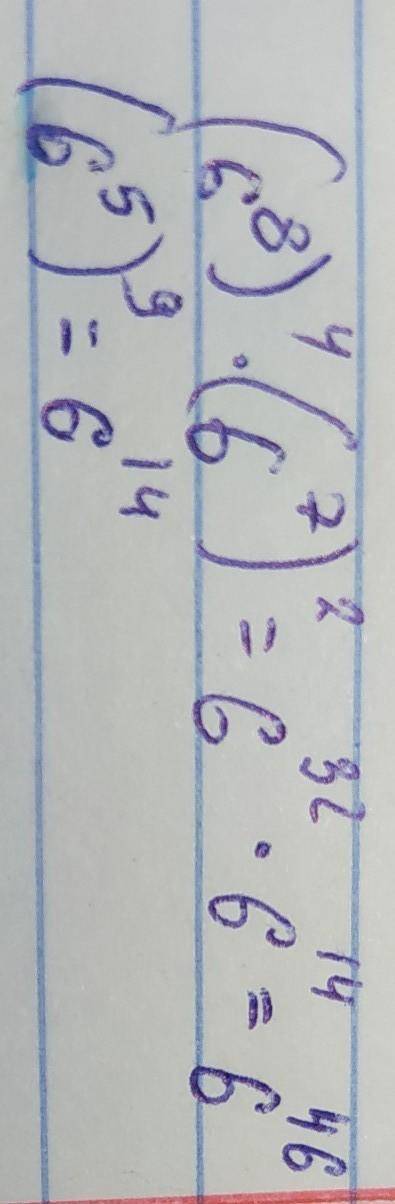 (6⁸)⁴ · (6⁷)² = 6³² · 6¹⁴ = 6⁴⁶
(6⁵)⁹ = 6¹⁴